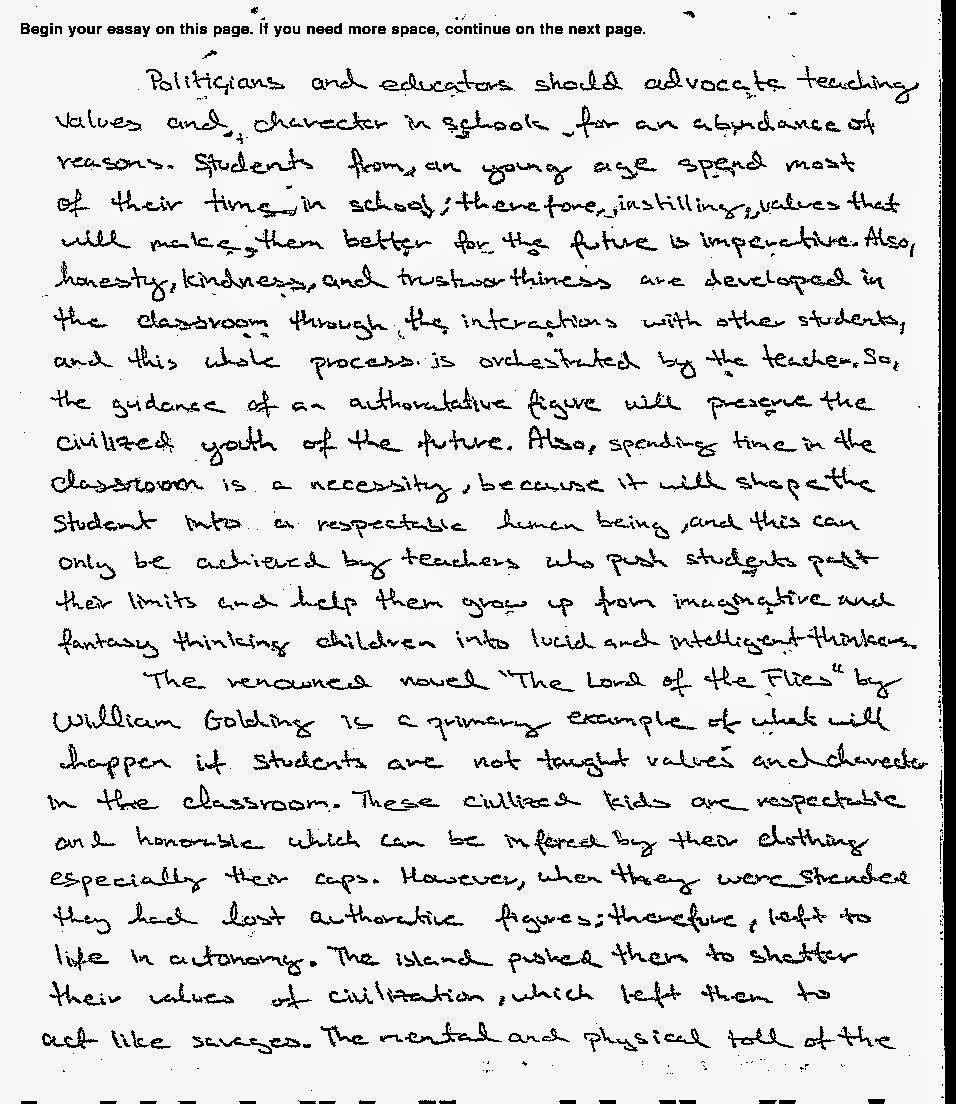 Begin your essay on this page. If you need more space, continue on the next page.
Politicians and educators should advocate teaching
values and charecter in schools for an abundance of
reasons. Students from an young age spend most
of their time in school; therefore, instilling values that
will make them better for the future is imperative. Also,
honesty, kindness, and trustworthiness are developed in
the classroom through the interactions with other students,
and this whole process is orchestrated by the teacher. So,
the guidance of an authoratative figure will preserve the
civilized youth of the future. Also, spending time in the
classroom is a necessity, because it will shape the
student into a respectable human being, and this can
only be achieved by teachers who push students past
their limits and help them grow up from imaginative and
fantasy thinking children into lucid and intelligent thinkers.
The renowned novel "The Lord of the Flies" by
William Golding is a primary example of what will
happen if students are not taught values and charecter
in the classroom. These civilized kids are respectable
and honorable which can be infered by their clothing
especially their caps. However, when they were strended
they had lost authorative figures; therefore, left to
life in autonomy. The island pushed them to shatter
their values of civilization, which left them to
act like savages. The mental and physical toll of the